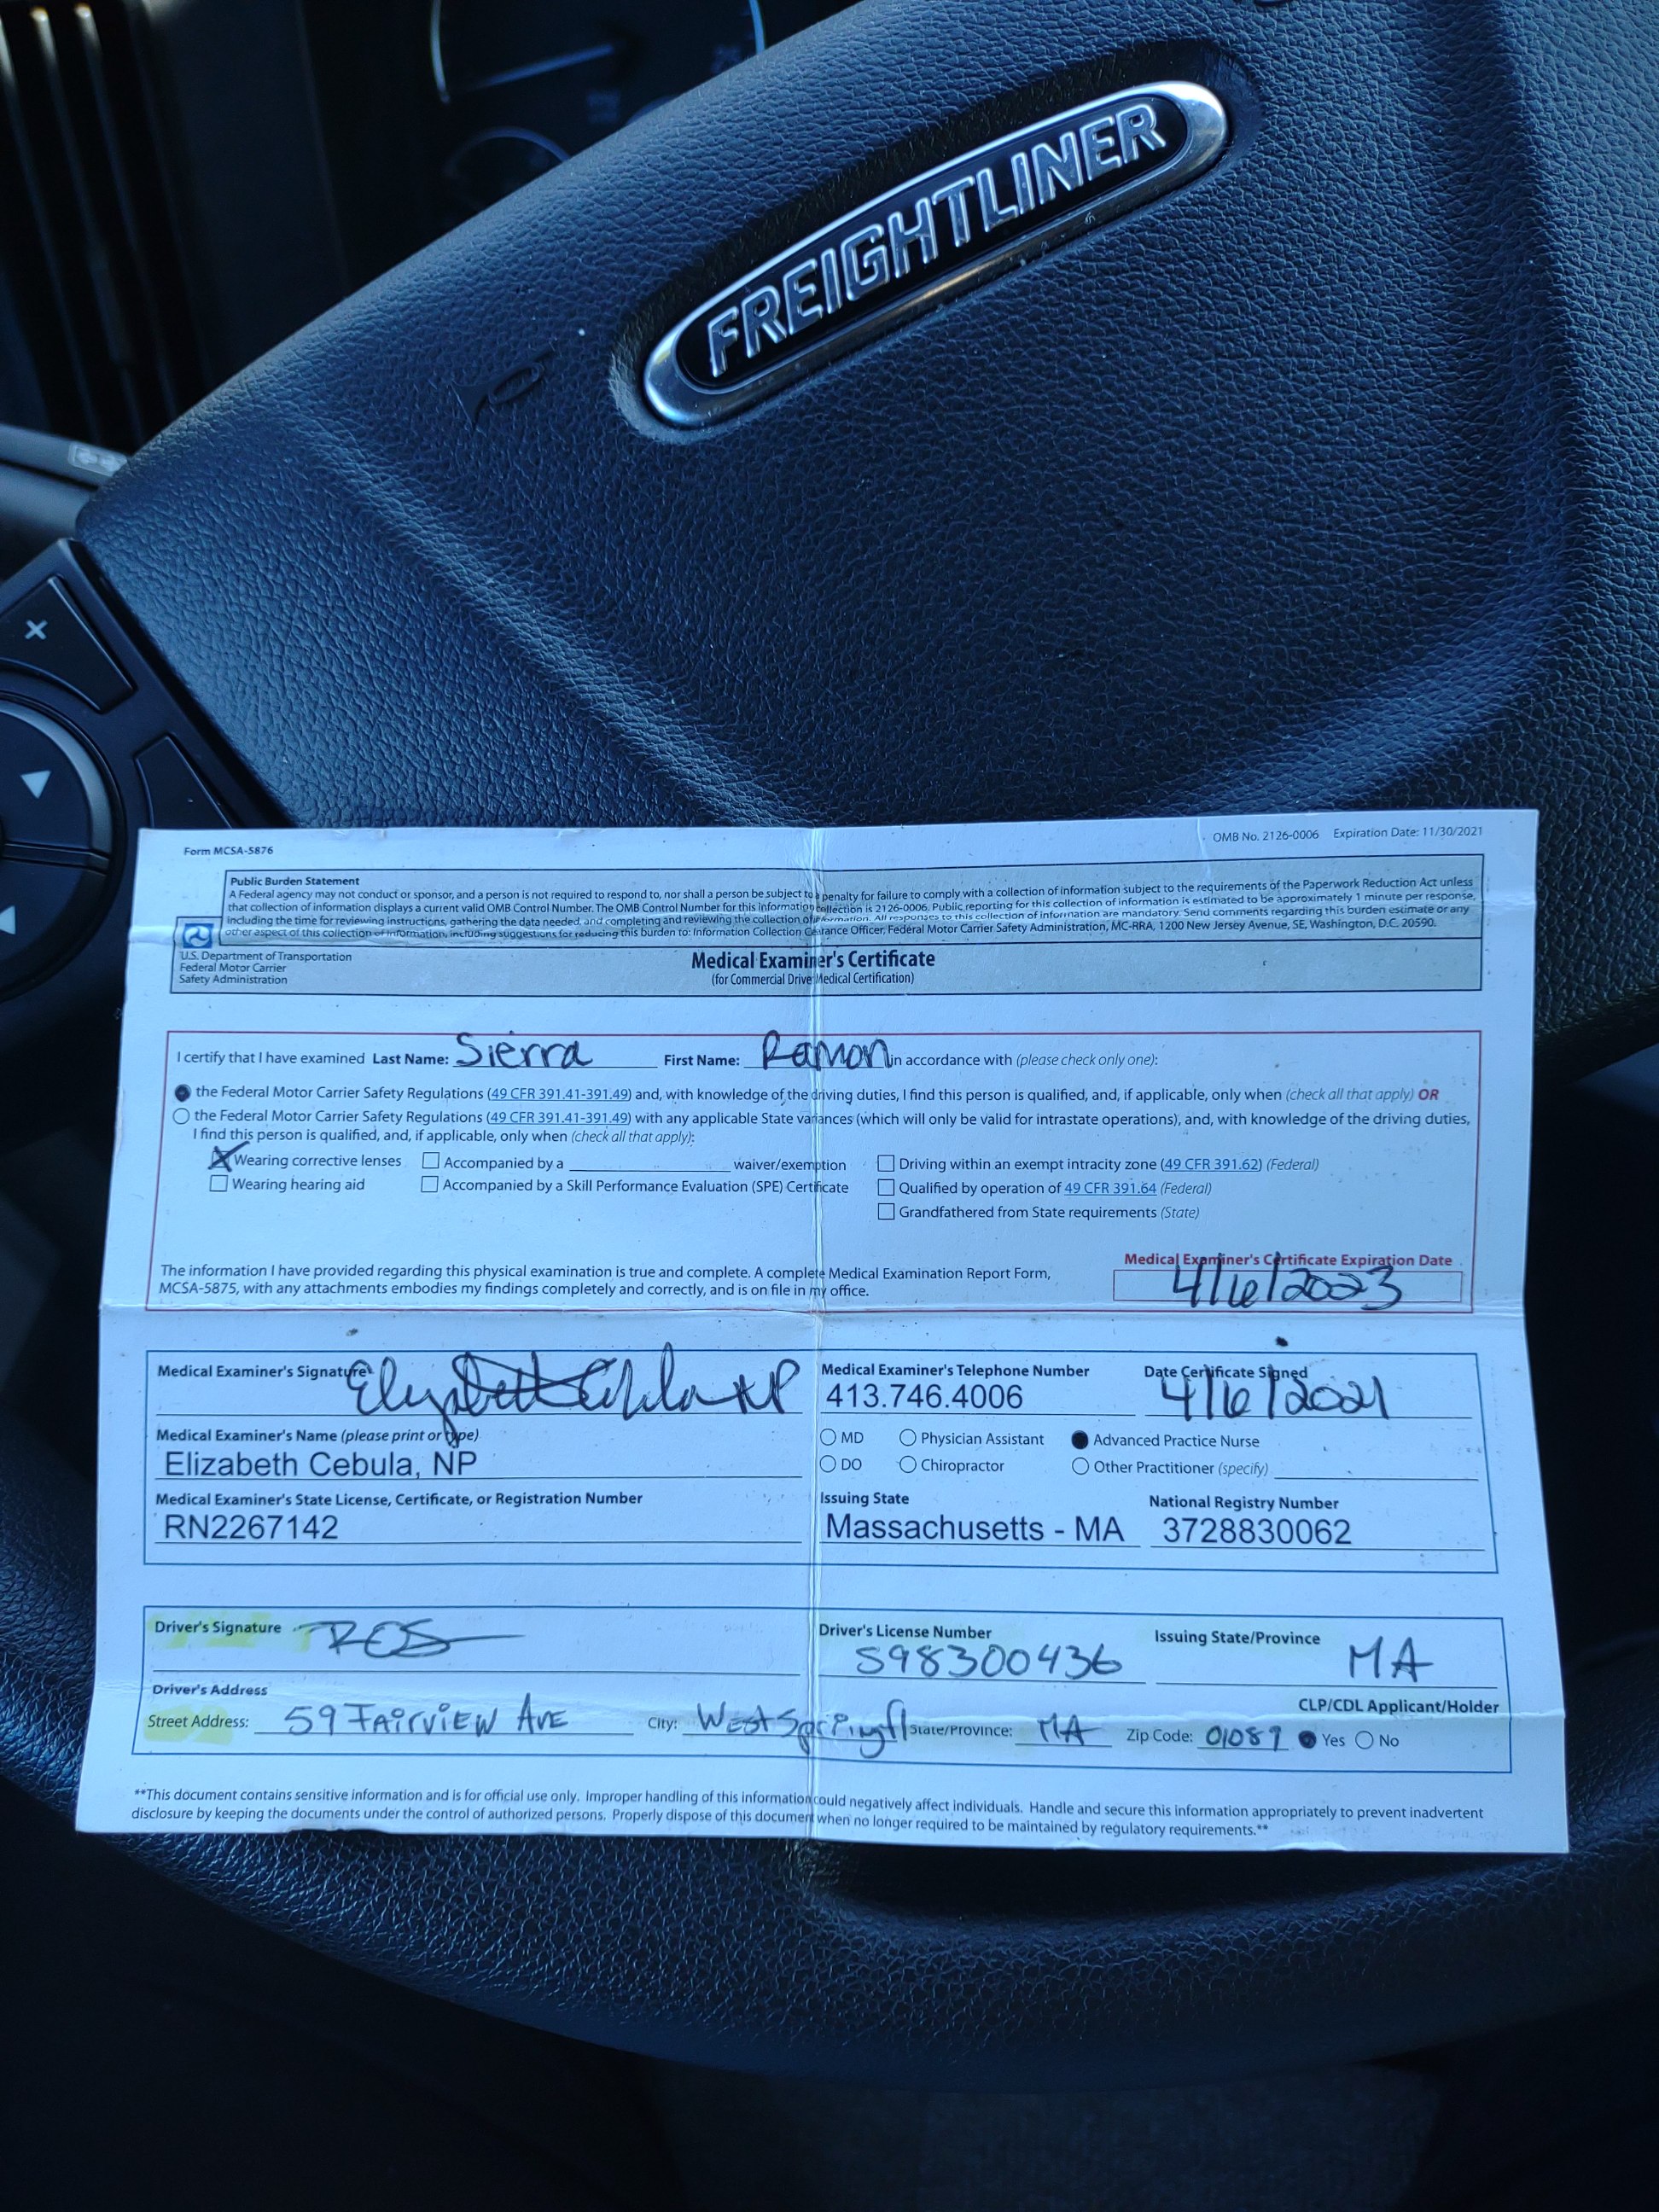 FREIGHTLINER
Form MCSA-5876
OMB No. 2126-0006 Expiration Date: 11/30/2021
Public Burden Statement
A Federal agency may not conduct or sponsor, and a person is not required to respond to, nor shall a person be subject to a penalty for failure to comply with a collection of information subject to the requirements of the Paperwork Reduction Act unless
that collection of information displays a current valid OMB Control Number. The OMB Control Number for this information collection is 2126-0006. Public reporting for this collection of information is estimated to be approximately 1 minute per response,
including the time for reviewing instructions, gathering the data needed, and completing and reviewing the collection of information. All responses to this collection of information are mandatory. Send comments regarding this burden estimate or any
other aspect of this collection of information, including suggestions for reducing this burden to: Information Collection Clearance Officer, Federal Motor Carrier Safety Administration, MC-RRA, 1200 New Jersey Avenue, SE, Washington, D.C. 20590.
U.S. Department of Transportation
Federal Motor Carrier
Safety Administration
Medical Examiner's Certificate
(for Commercial Driver Medical Certification)
I certify that I have examined Last Name: Sierra First Name: Ramon in accordance with (please check only one):
the Federal Motor Carrier Safety Regulations (49 CFR 391.41-391.49) and, with knowledge of the driving duties, I find this person is qualified, and, if applicable, only when (check all that apply) OR
the Federal Motor Carrier Safety Regulations (49 CFR 391.41-391.49) with any applicable State variances (which will only be valid for intrastate operations), and, with knowledge of the driving duties,
I find this person is qualified, and, if applicable, only when (check all that apply):
Wearing corrective lenses Accompanied by a waiver/exemption Driving within an exempt intracity zone (49 CFR 391.62) (Federal)
Wearing hearing aid Accompanied by a Skill Performance Evaluation (SPE) Certificate Qualified by operation of 49 CFR 391.64 (Federal)
Grandfathered from State requirements (State)
The information I have provided regarding this physical examination is true and complete. A complete Medical Examination Report Form,
MCSA-5875, with any attachments embodies my findings completely and correctly, and is on file in my office.
Medical Examiner's Certificate Expiration Date
4/16/2023
Medical Examiner's Signature Elizabeth Cebula NP
Medical Examiner's Telephone Number
413.746.4006
Date Certificate Signed
4/16/2021
Medical Examiner's Name (please print or type)
Elizabeth Cebula, NP
MD Physician Assistant Advanced Practice Nurse
DO Chiropractor Other Practitioner (specify)
Medical Examiner's State License, Certificate, or Registration Number
RN2267142
Issuing State
Massachusetts - MA
National Registry Number
3728830062
Driver's Signature RES
Driver's License Number
S98300436
Issuing State/Province
MA
Driver's Address
CLP/CDL Applicant/Holder
Street Address: 59 FAIRVIEW AVE City: West Springfl State/Province: MA Zip Code: 01089 Yes No
**This document contains sensitive information and is for official use only. Improper handling of this information could negatively affect individuals. Handle and secure this information appropriately to prevent inadvertent
disclosure by keeping the documents under the control of authorized persons. Properly dispose of this document when no longer required to be maintained by regulatory requirements.**